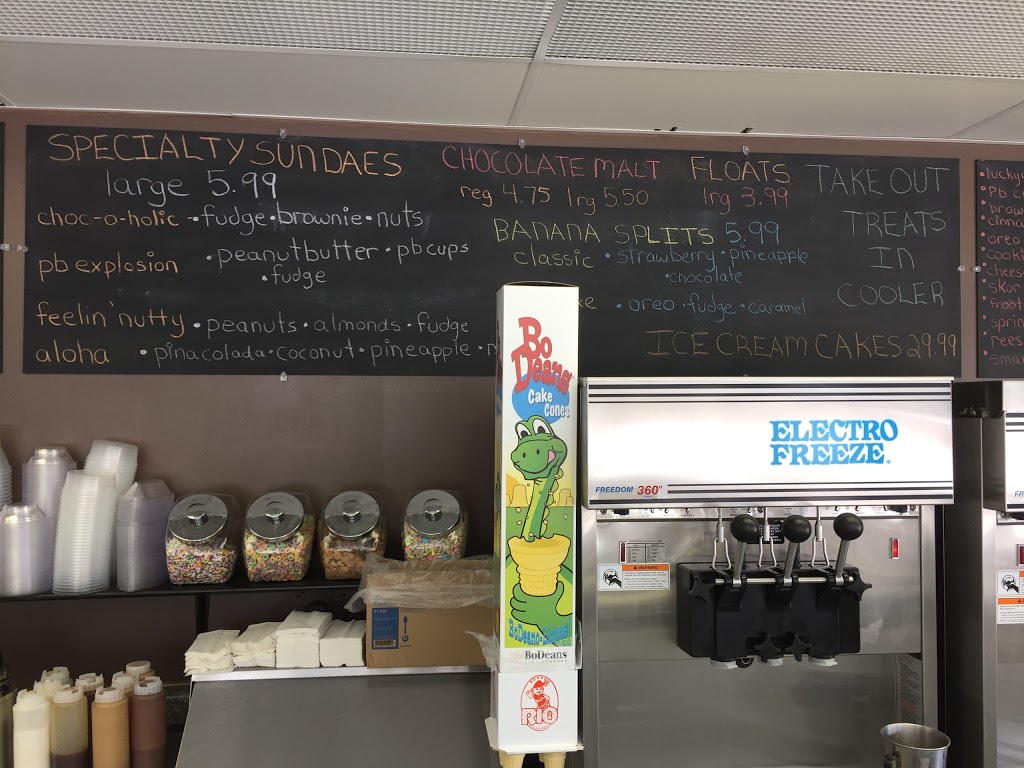 SPECIALTY SUNDAES
large 5.99
choc-o-holic • fudge • brownie • nuts
pb explosion • peanutbutter • pb cups
• fudge
feelin' nutty • peanuts • almonds • fudge
aloha • pinacolada • coconut • pineapple •
CHOCOLATE MALT
reg 4.75 lrg 5.50
FLOATS
lrg 3.99
BANANA SPLITS 5.99
classic • strawberry • pineapple
• chocolate
• oreo • fudge • caramel
TAKE OUT
TREATS
IN
COOLER
ICE CREAM CAKES 29.99
oreo
skor
Bo
Deans
Cake
Cones
BoDeans
ELECTRO
FREEZE
FREEDOM 360°
WARNING